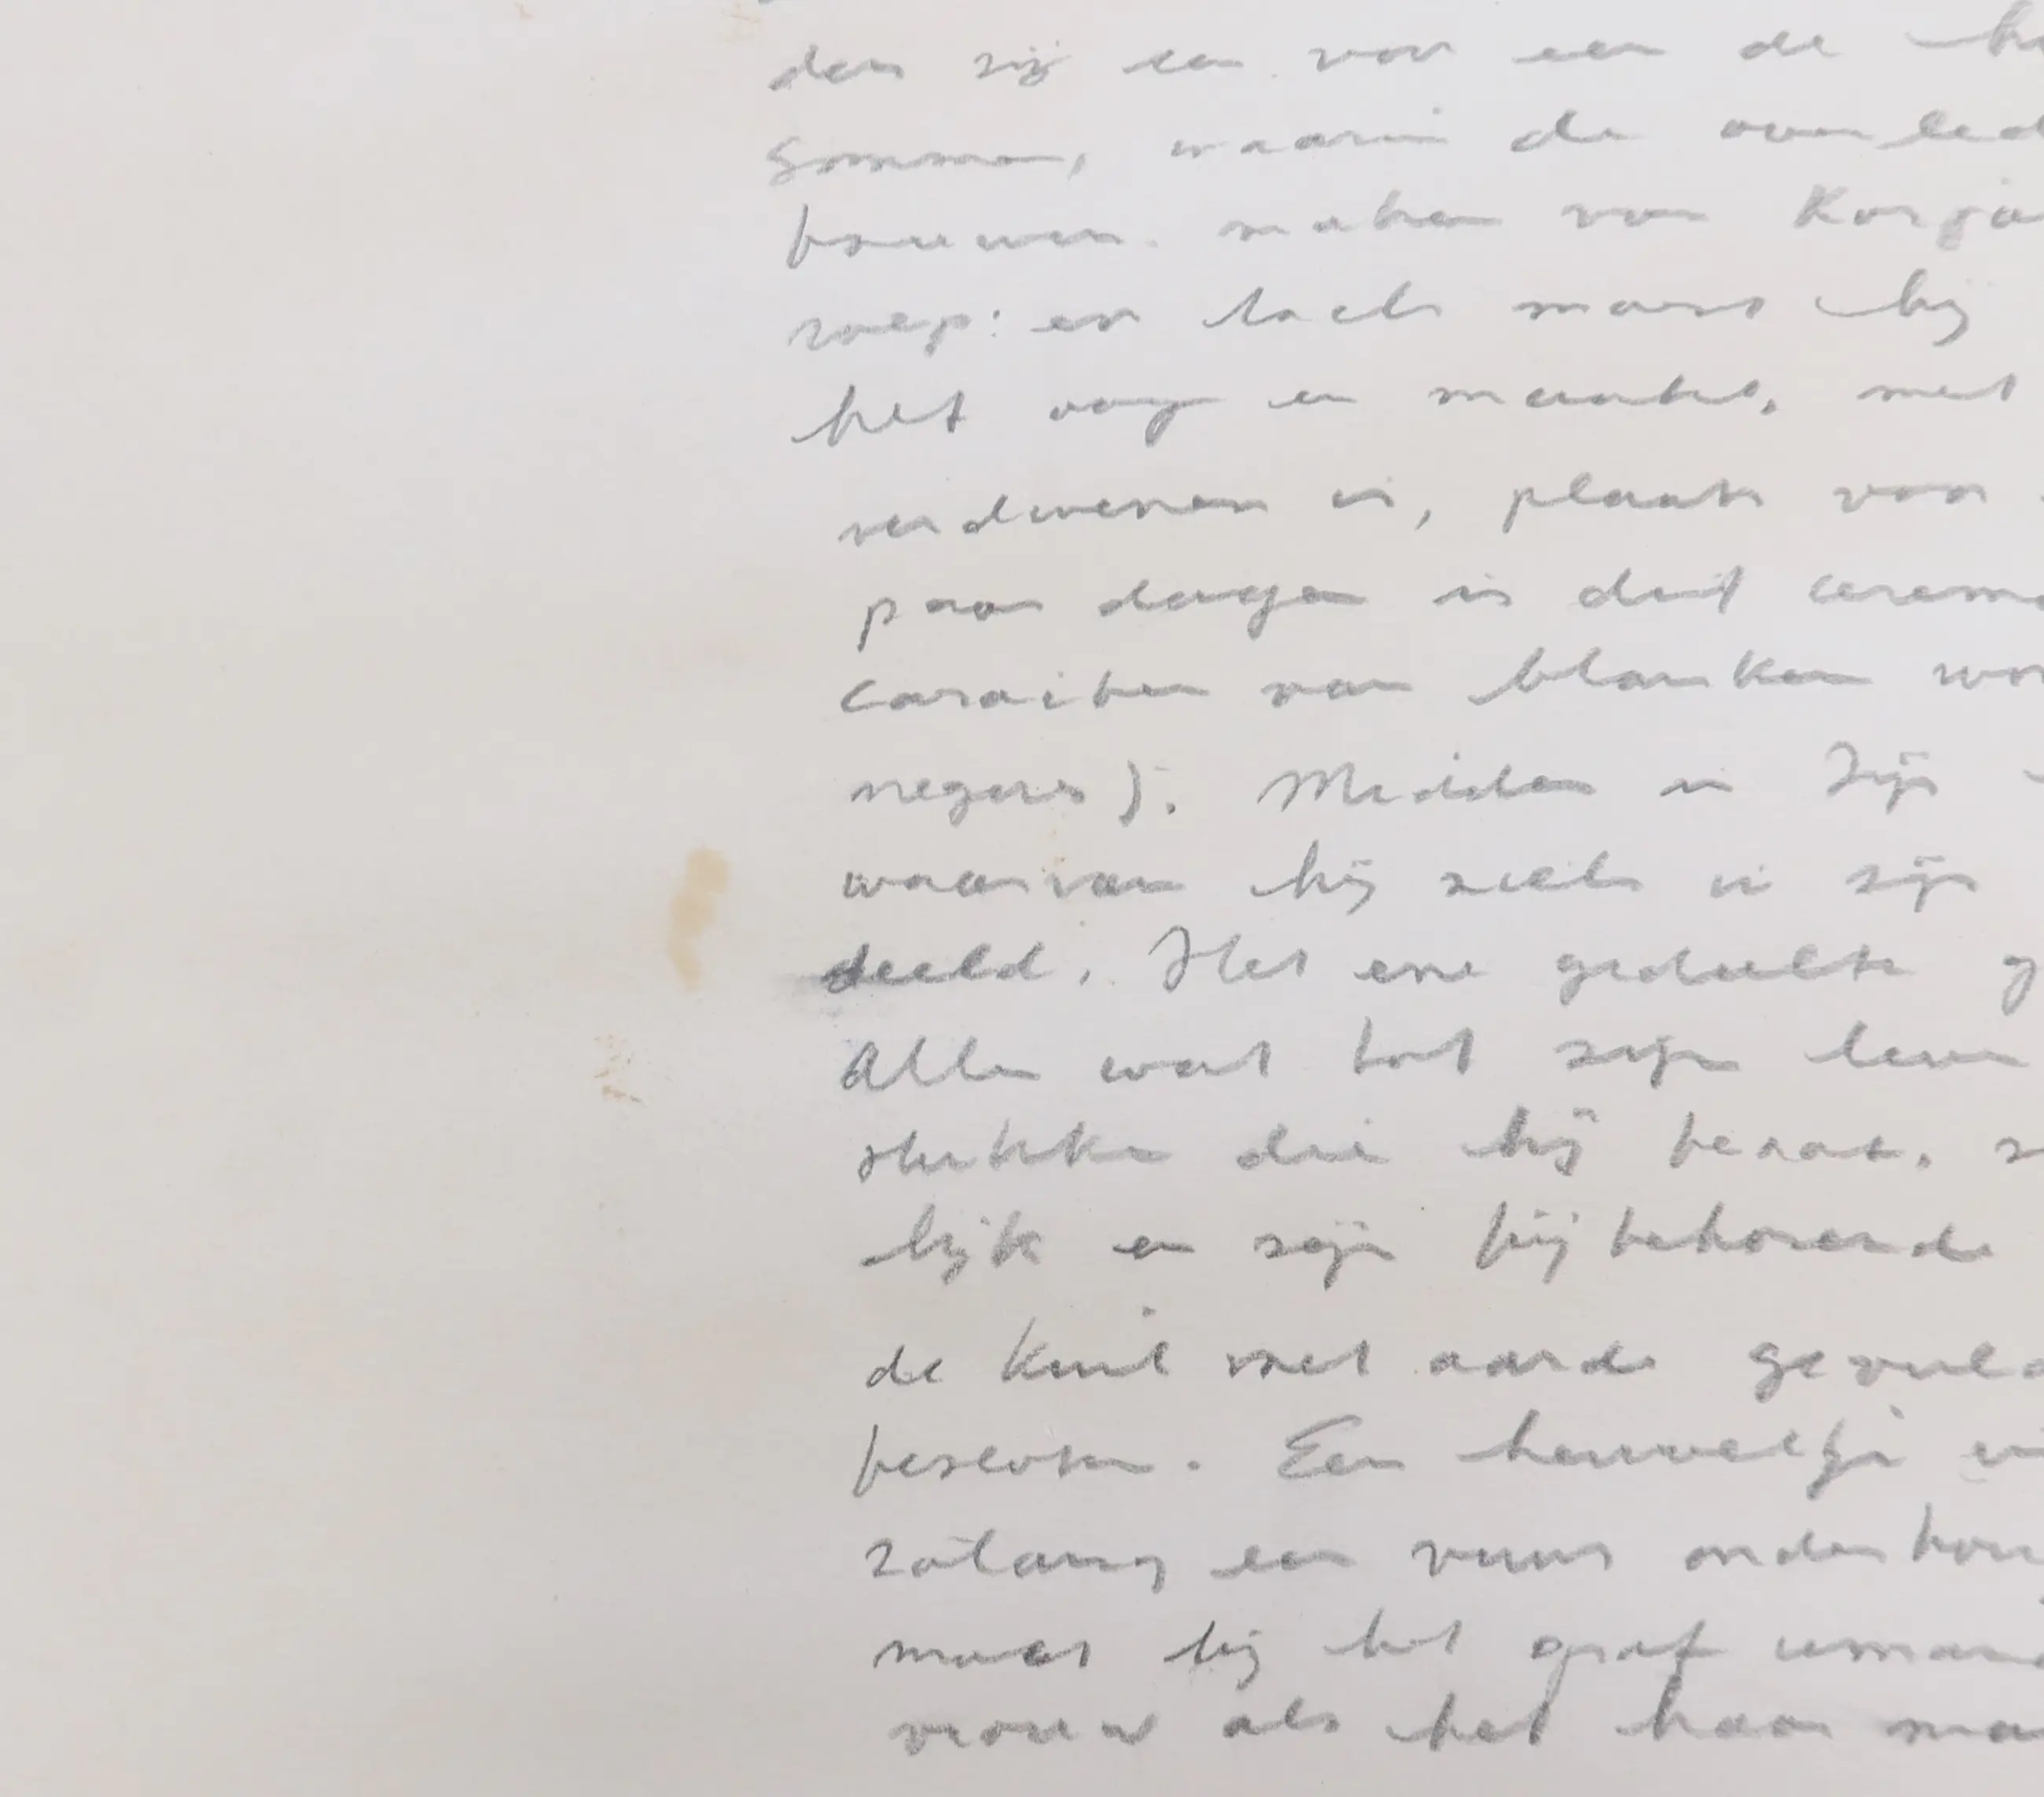 den zij een voor een de
Somma, waarin de overled
bouwen. maken van Korja
roep: en toch moest hij
het oog en maakt, met
verdwenen is, plaats voor
paar dagen is dat ceremo
Caraiben van blanken wor
negers). Midden in Zijn
waarvan hij ziels in zijn
deeld. Het ene gedeelte g
Alles wat tot zijn leven
stukken die hij bezat, z
lijk en zijn bijbehorende
de kuil met aarde gevuld
besloten. Een heuveltje
zolang een vuur onderhou
moet bij het graf iemand
vrouw als het haar ma